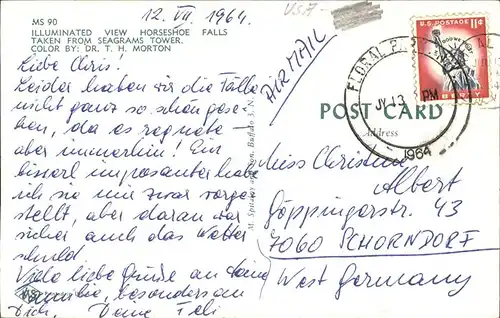 MS 90
ILLUMINATED VIEW HORSESHOE FALLS
TAKEN FROM SEAGRAMS TOWER.
COLOR BY: DR. T. H. MORTON
12. VII. 1964.
Liebe Chris!
Leider haben wir die Fälle
nicht ganz so schön gese-
hen, da es regnete -
aber immerhin! Ein
bisserl imposanter hab
ich sie mir zwar vorge-
stellt, aber daran war
sicher auch das Wetter
schuld.
Viele liebe Grüsse an deine
Familie, besonders an
Dich, Deine
USA-
AIRMAIL
U.S. POSTAGE
11¢
LIBERTY
FLORAL PARK
JY 13
PM
1964
POST CARD
Address
Buffalo 3, N.Y.
Miss Christine
Albert
Göppingerstr. 43
7060 SCHORNDORF
West Germany